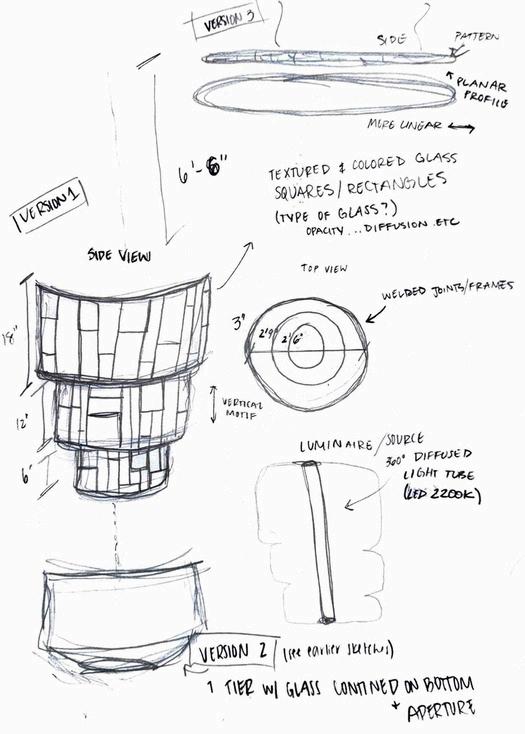 VERSION 3
SIDE
PATTERN
PLANAR
PROFILE
MORE LINEAR
6'-6"
TEXTURED & COLORED GLASS
SQUARES/RECTANGLES
(TYPE OF GLASS?)
OPACITY... DIFFUSION .ETC
VERSION 1
SIDE VIEW
TOP VIEW
WELDED JOINTS/FRAMES
18"
3"
2'9"
2'
6"
12"
VERTICAL
MOTIF
6"
LUMINAIRE/SOURCE
360° DIFFUSED
LIGHT TUBE
(LED 2200K)
VERSION 2 (see earlier sketches)
1 TIER W/ GLASS CONTINED ON BOTTOM
+ APERTURE